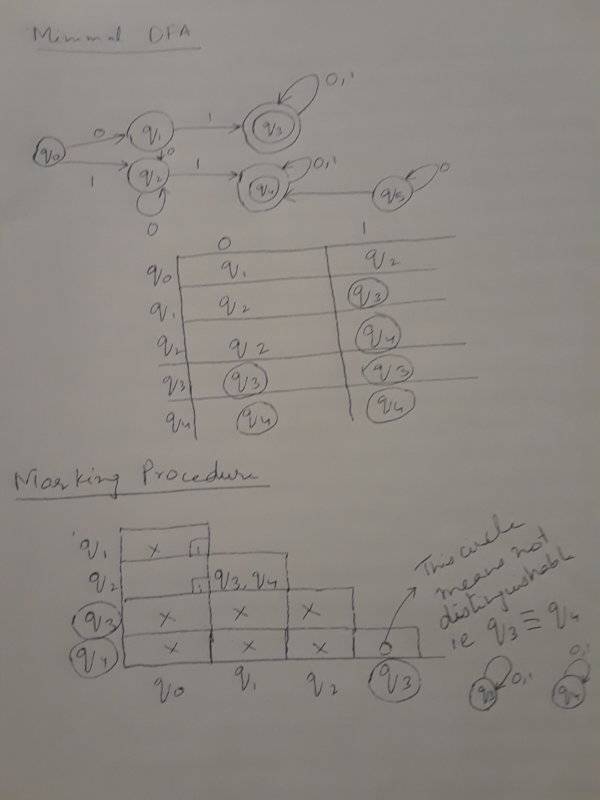 Minimal DFA
0,1
1
q3
0
q1
q0
0
1
q2
1
q4
0,1
0
q5
0
0 1
q0 q1 q2
q1 q2 q3
q2 q2 q4
q3 q3 q3
q4 q4 q4
Marking Procedure
q1 x 1
q2 1 q3, q4
q3 x x x
q4 x x x 0
q0 q1 q2 q3
This circle
means not
distinguishable
ie q3 ≡ q4
q3 0,1
q4 0,1